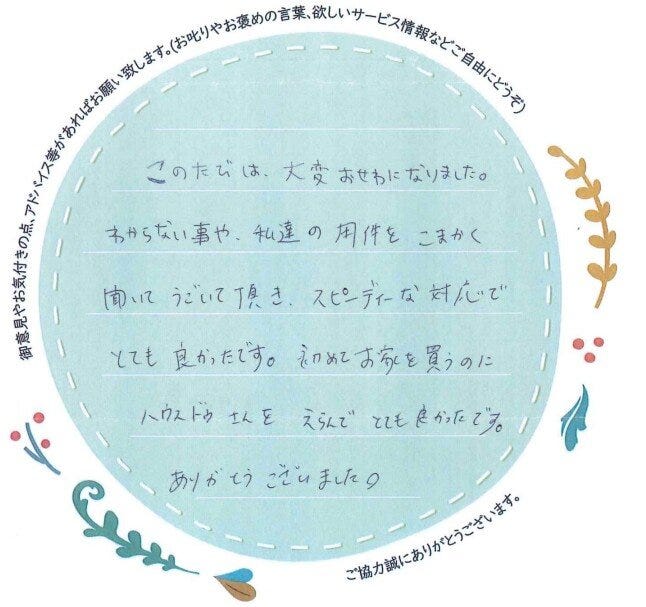 御意見やお気付きの点、アドバイス等があればお願い致します。(お叱りやお褒めの言葉、欲しいサービス情報などご自由にどうぞ)
このたびは、大変おせわになりました。
わからない事や、私達の用件をこまかく
聞いてうごいて頂き、スピーディーな対応で
とても良かったです。初めてお家を買うのに
ハウスドゥさんをえらんでとても良かったです。
ありがとうございました。
ご協力誠にありがとうございます。